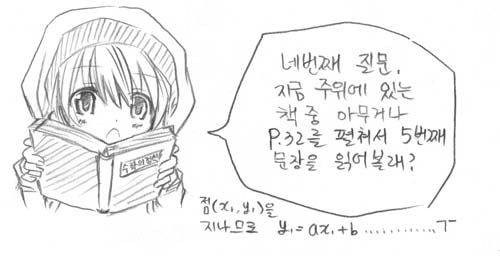 네번째 질문.
지금 주위에 있는
책 중 아무거나
P.32를 펼쳐서 5번째
문장을 읽어볼래?
수학의 정석
점(x₁, y₁)을
지나므로 y₁=ax₁+b ............ㄱ